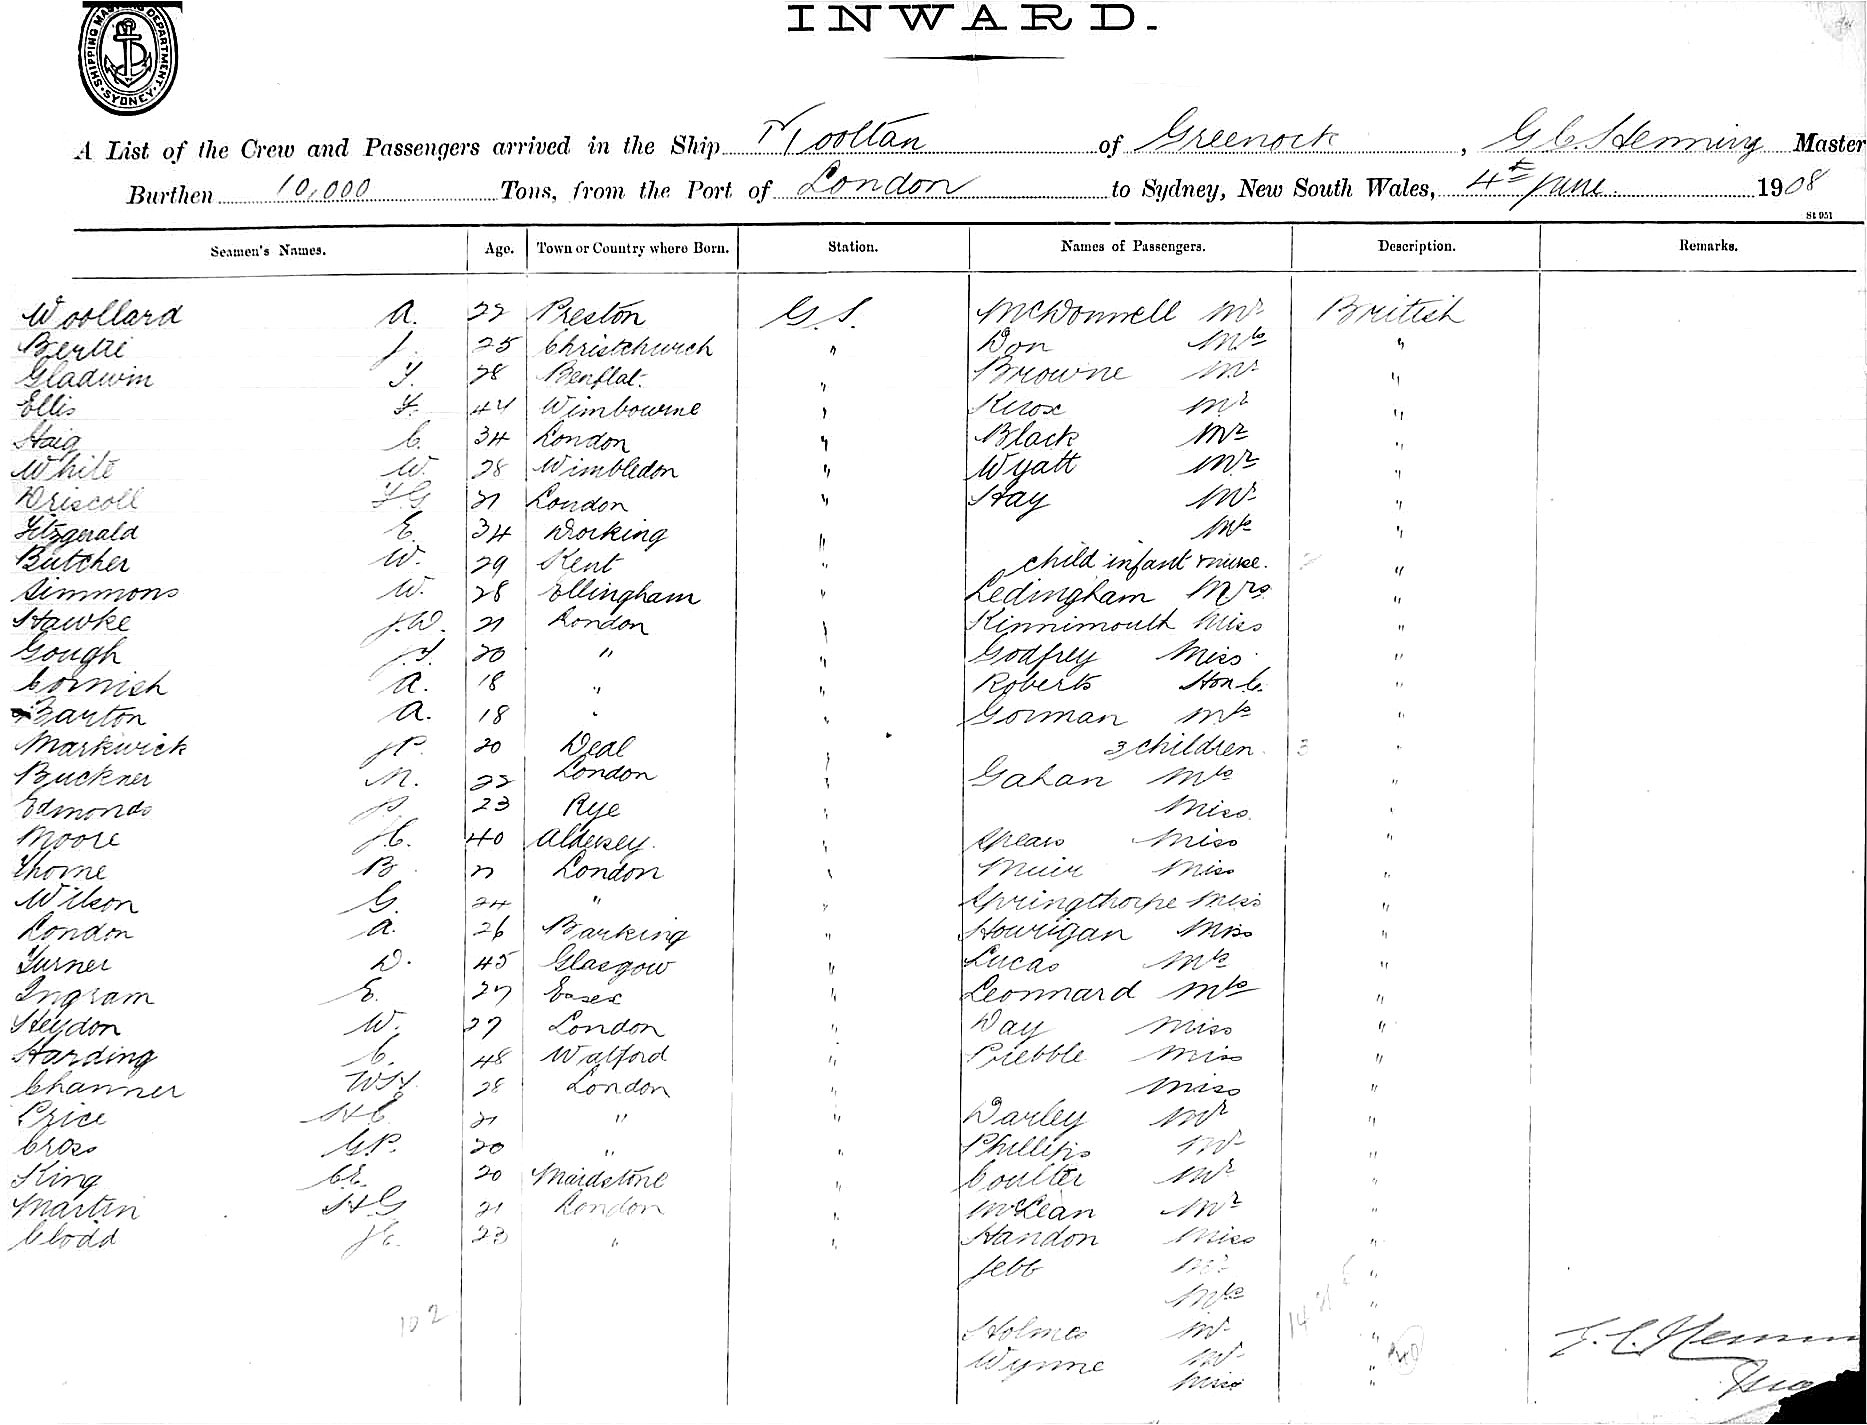 SHIPPING MASTERS DEPARTMENT. SYDNEY.
INWARD.
A List of the Crew and Passengers arrived in the Ship Mooltan of Greenock, G C Henning Master
Burthen 10,000 Tons, from the Port of London to Sydney, New South Wales, 4th June 1908
St 951
Seamen's Names. Age. Town or Country where Born. Station. Names of Passengers. Description. Remarks.
Woollard A. 22 Preston G.S. McDonnell Mr British
Bertie J. 25 Christchurch " Don Mrs "
Gladwin 28 Benflat. " Browne Mr "
Ellis 44 Wimbourne " Knox Mr "
Haig C. 34 London " Black Mr "
White W. 28 Wimbledon " Wyatt Mr "
Driscoll 21 London " Hay Mr "
Fitzgerald E. 34 Dorking " Mrs "
Butcher W. 29 Kent " child infant & nurse. "
Simmons W. 28 Ellingham " Ledingham Mrs "
Hawke J.W. 21 London " Kinnimouth Miss "
Gough 20 " " Godfrey Miss "
Cornish A. 18 " " Roberts Hon C. "
Barton A. 18 " " Gorman Mrs "
Markwick J.P. 20 Deal " 3 children. 3 "
Buckner M. 22 London " Gahan Mrs "
Edmonds 23 Rye " Miss. "
Moore J.C. 40 Aldersey. " Spears Miss "
Thorne B. 21 London " Muir Miss "
Wilson G. 24 " " Springthorpe Miss "
London A. 26 Barking " Hourigan Miss "
Turner D. 45 Glasgow " Lucas Mrs "
Ingram E. 27 Essex " Leonnard Mrs "
Heydon W. 27 London " Day Miss "
Harding C. 48 Watford " Prebble Miss "
Channer 28 London " Miss "
Price H C 21 " " Darley Mr "
Cross G.P. 20 " " Phillips Mr "
King 20 Maidstone " Coulter Mr "
Martin H G 21 London " McLean Mr "
Clodd 23 " " Handon Miss "
Jebb Mr "
Mrs "
102 Holmes Mr "
Wynne Mr "
Miss "